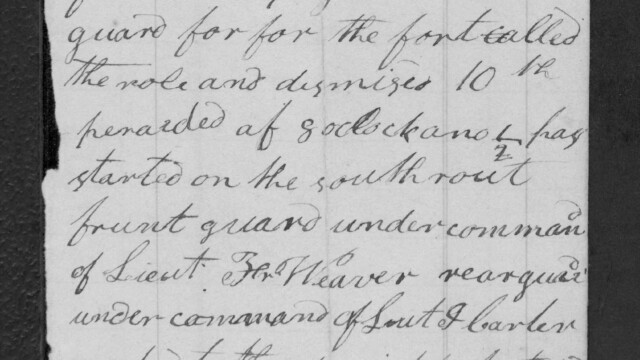 guard for for the fort called
the role and dismiss 10th
peraided at 8 oclock and 1/2 pas
started on the south rout
frunt guard under comman
of Lieut. Weaver rearguard
under command of Leut J Carter